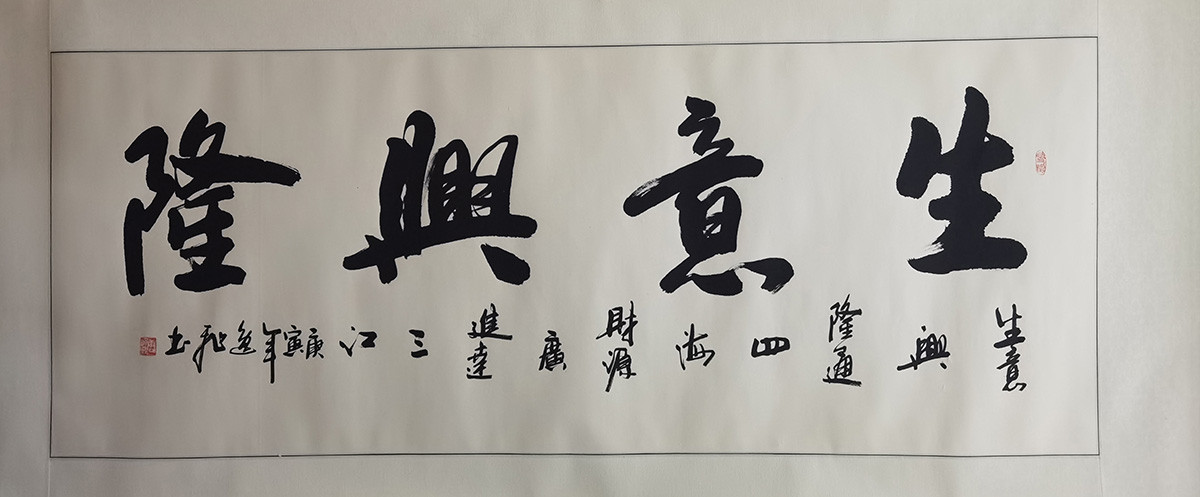 生意興隆
生意興隆通四海財源廣進達三江庚寅年逸飛书